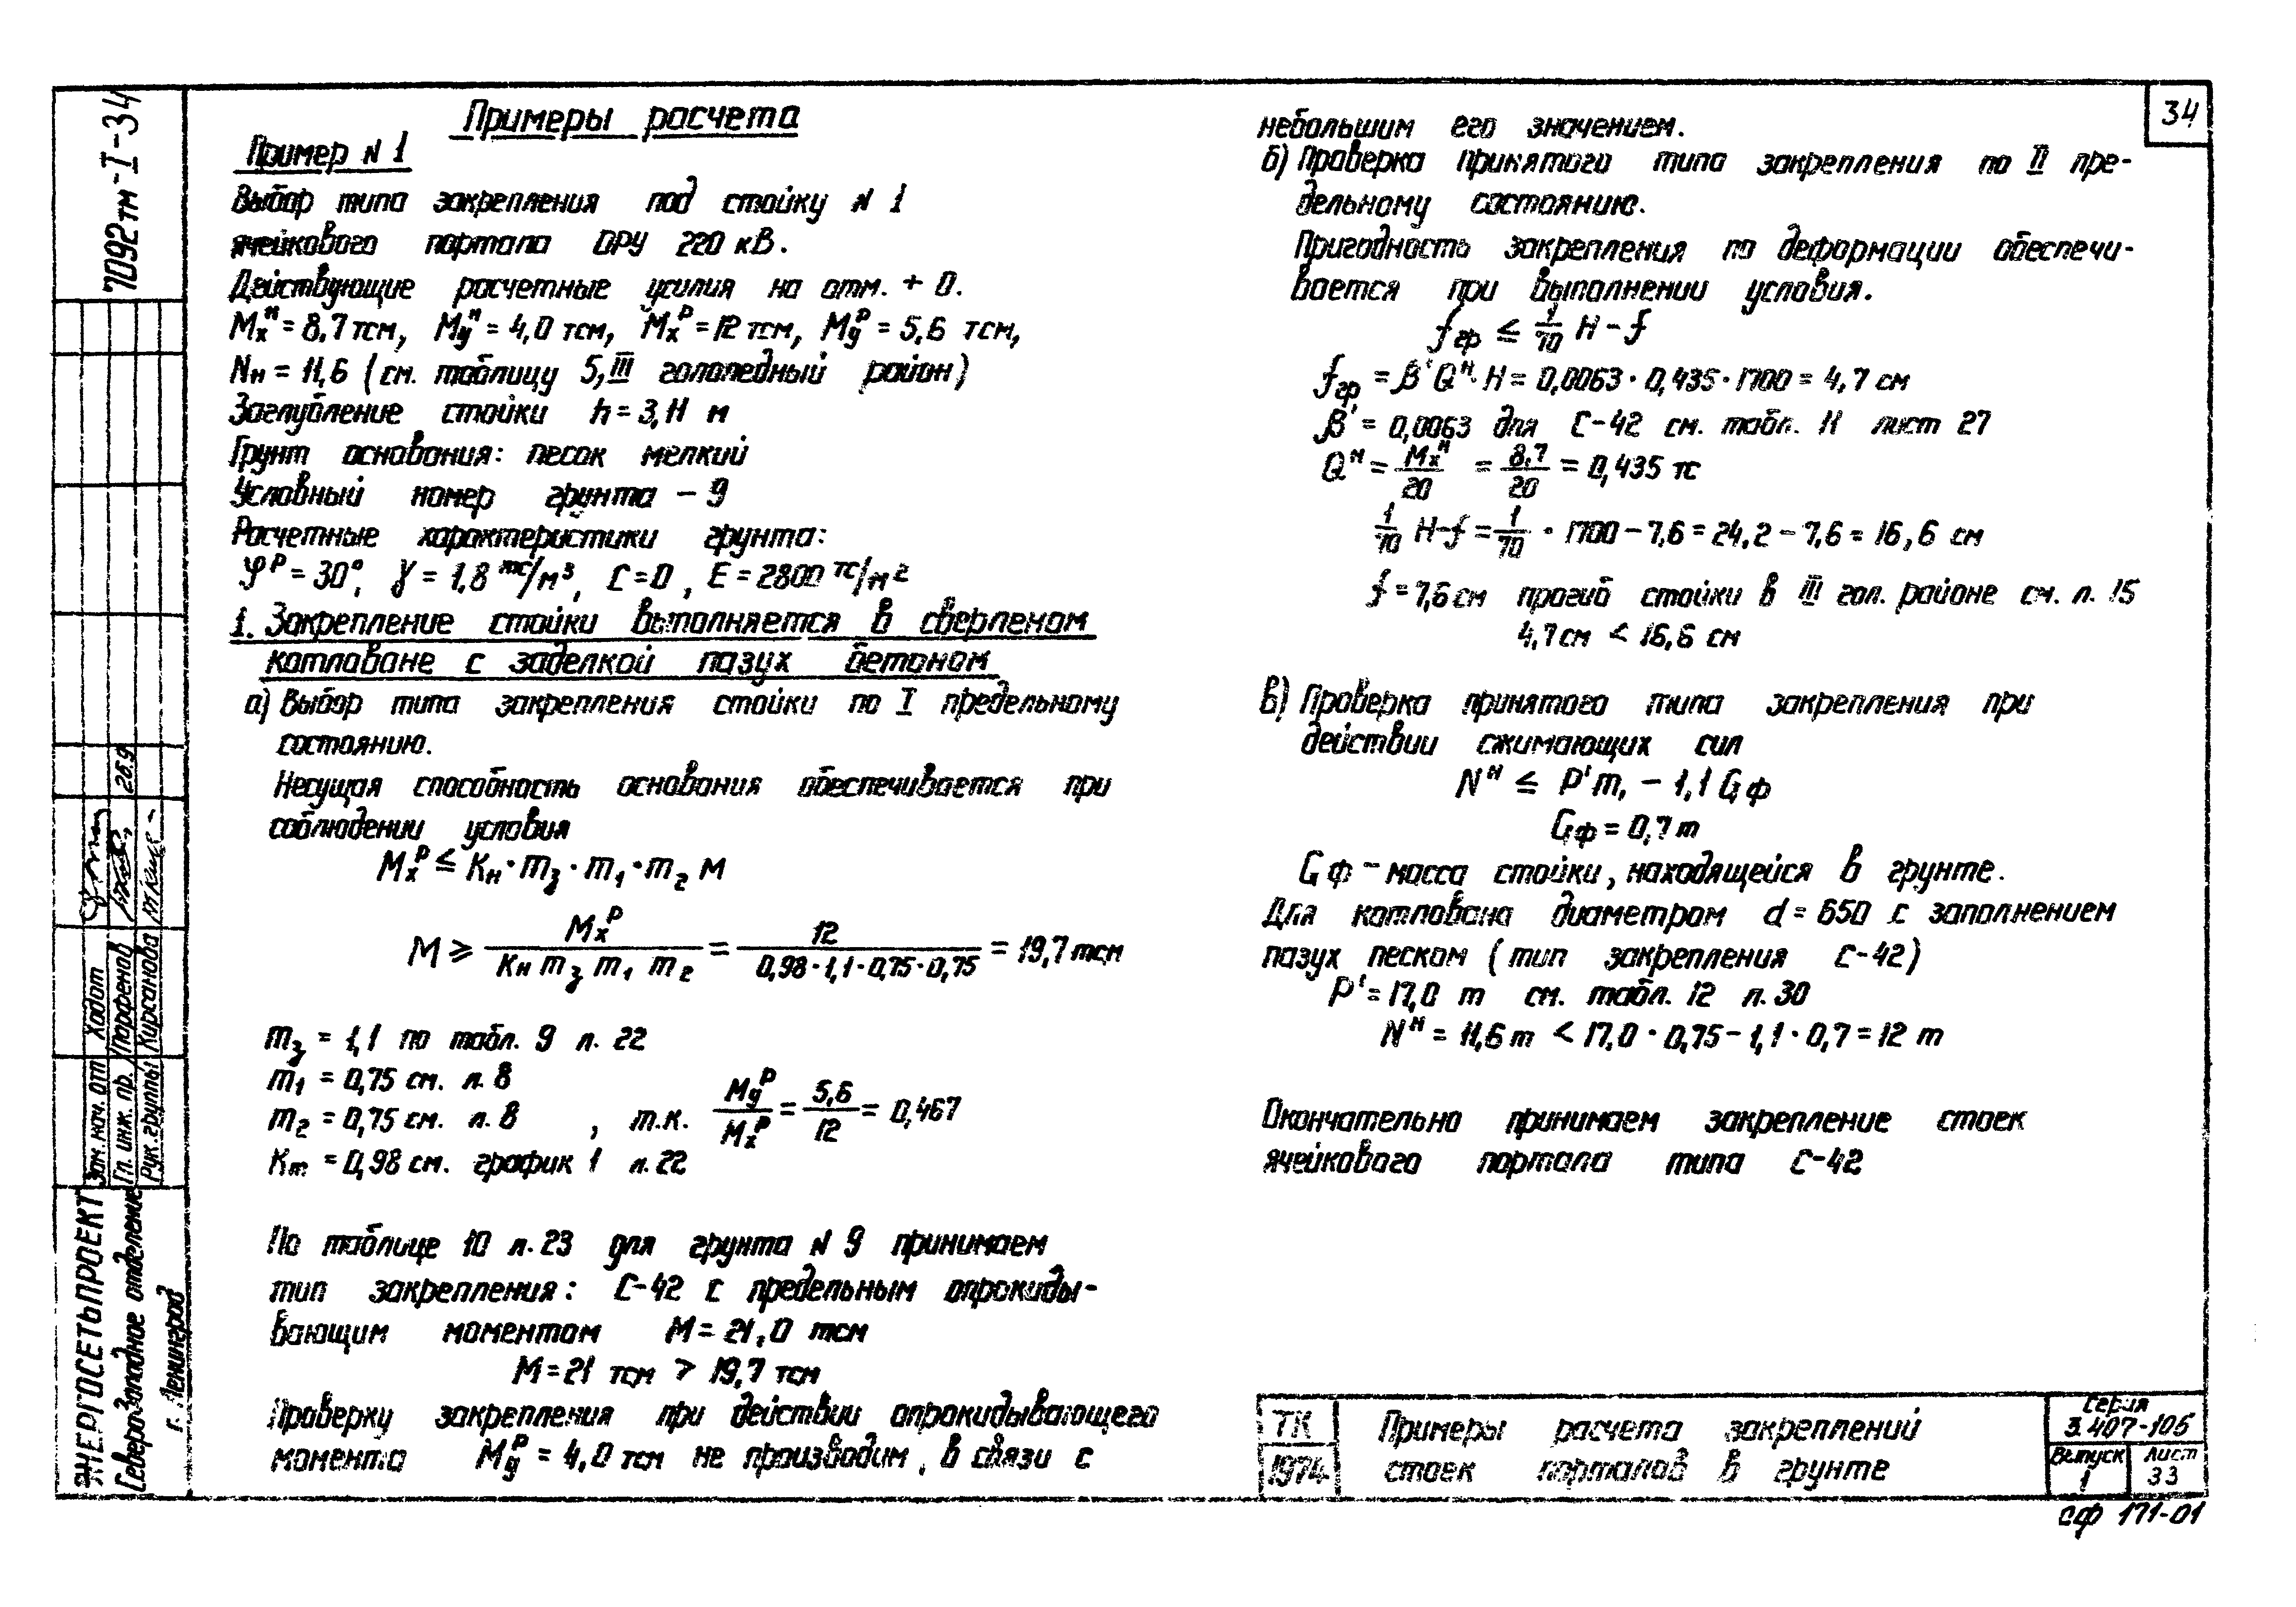 Примеры расчета
Пример N 1
Выбор типа закрепления под стойку N 1
ячейкового портала ОРУ 220 кВ.
Действующие расчетные усилия на отм. + 0.
Mxᴴ = 8,7 тсм, Myᴴ = 4,0 тсм, Mxᴾ = 12 тсм, Myᴾ = 5,6 тсм,
Nн = 11,6 (см. таблицу 5, III гололедный район)
Заглубление стойки h = 3,11 м
Грунт основания: песок мелкий
Условный номер грунта – 9
Расчетные характеристики грунта:
φᴾ = 30°, γ = 1,8 тс/м³, C = 0, E = 2800 тс/м²
1. Закрепление стойки выполняется в сверленом
котловане с заделкой пазух бетоном
а) Выбор типа закрепления стойки по I предельному
состоянию.
Несущая способность основания обеспечивается при
соблюдении условия
Mxᴾ ≤ Kн · m₃ · m₁ · m₂ M
M ≥ Mxᴾ / (Kн m₃ m₁ m₂) = 12 / (0,98 · 1,1 · 0,75 · 0,75) = 19,7 тсм
m₃ = 1,1 по табл. 9 л. 22
m₁ = 0,75 см. л. 8
m₂ = 0,75 см. л. 8 , т.к. Myᴾ / Mxᴾ = 5,6 / 12 = 0,467
Km = 0,98 см. график 1 л. 22
По таблице 10 л. 23 для грунта N 9 принимаем
тип закрепления: С-42 с предельным опрокиды-
вающим моментом M = 21,0 тсм
M = 21 тсм > 19,7 тсм
Проверку закрепления при действии опрокидывающего
момента Myᴾ = 4,0 тсм не производим, в связи с
небольшим его значением.
б) Проверка принятого типа закрепления по II пре-
дельному состоянию.
Пригодность закрепления по деформации обеспечи-
вается при выполнении условия.
fгр ≤ 1/70 H – f
fгр = β' Qᴴ · H = 0,0063 · 0,435 · 1700 = 4,7 см
β' = 0,0063 для С-42 см. табл. 11 лист 27
Qᴴ = Mxᴴ / 20 = 8,7 / 20 = 0,435 тс
1/70 H – f = 1/70 · 1700 – 7,6 = 24,2 – 7,6 = 16,6 см
f = 7,6 см прогиб стойки в III гол. районе см. л. 15
4,7 см < 16,6 см
в) Проверка принятого типа закрепления при
действии сжимающих сил
Nᴴ ≤ P' m₁ – 1,1 Gф
Gф = 0,7 т
Gф – масса стойки, находящейся в грунте.
Для котлована диаметром d = 650 с заполнением
пазух песком (тип закрепления С-42)
P' = 17,0 т см. табл. 12 л. 30
Nᴴ = 11,6 т < 17,0 · 0,75 – 1,1 · 0,7 = 12 т
Окончательно принимаем закрепление стоек
ячейкового портала типа С-42
34
7092тм-I-34
26.9
Зам. нач. ОТП Хадот
Гл. инж. пр. Парфенов
Рук. группы Кирсанова
ЭНЕРГОСЕТЬПРОЕКТ
Северо-Западное отделение
г. Ленинград
ТК
1974
Примеры расчета закреплений
стоек порталов в грунте
Серия
3.407-105
Выпуск
1
Лист
33
сф 171-01